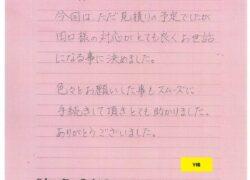 今回は、ただ見積りの予定でしたが
対応がとても良くお世話
になる事に決めました。
色々とお願いした事もスムーズに
手続きして頂きとても助かりました。
ありがとうございました。